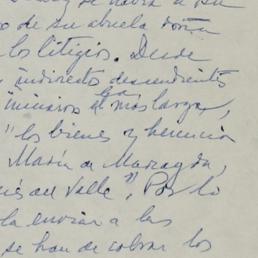 de su abuela doña
los litigios. Desde
indirecto descendientes
más larga,
"los bienes y herencia
María de Maragda,
del Valle", Por lo
la enviar a las
se han de cobrar los